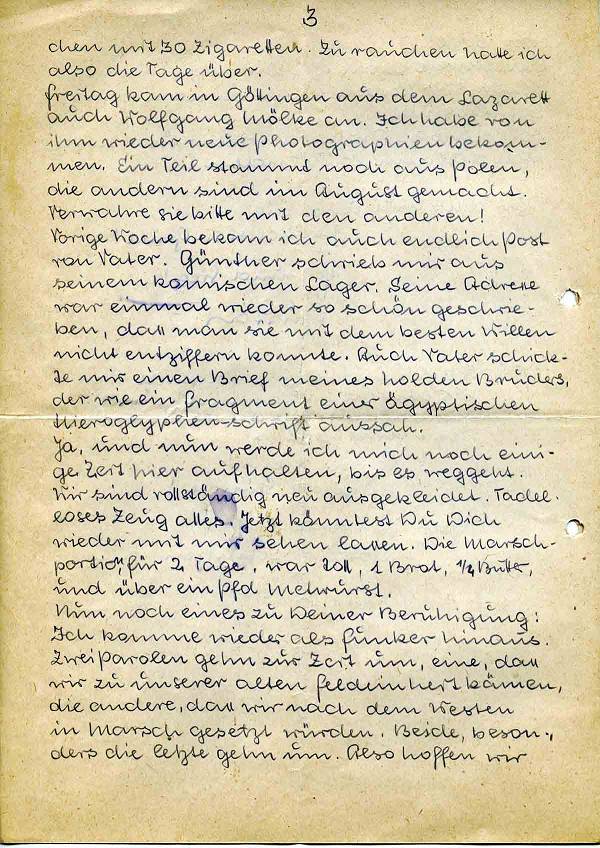 3
chen mit 30 Zigaretten. Zu rauchen hatte ich
also die Tage über.
Freitag kam in Göttingen aus dem Lazarett
auch Wolfgang Mölke an. Ich habe von
ihm wieder neue Photographien bekom-
men. Ein Teil stammt noch aus Polen,
die andern sind im August gemacht.
Verwahre sie bitte mit den anderen!
Vorige Woche bekam ich auch endlich Post
von Vater. Günther schrieb mir aus
seinem komischen Lager. Seine Adresse
war einmal wieder so schön geschrie-
ben, dass man sie mit dem besten Willen
nicht entziffern konnte. Auch Vater schick-
te mir einen Brief meines holden Bruders,
der wie ein Fragment einer ägyptischen
Hieroglyphen-schrift aussah.
Ja, und nun werde ich mich noch eini-
ge Zeit hier aufhalten, bis es weggeht.
Wir sind vollständig neu ausgekleidet. Tadel-
loses Zeug alles. Jetzt könntest Du Dich
wieder mit mir sehen lassen. Die Marsch-
portion für 2 Tage, war toll, 1 Brot, 1/4 Butter,
und über ein Pfd Metwurst.
Nun noch eines zu Deiner Beruhigung:
Ich komme wieder als Funker hinaus.
Zwei Parolen gehn zur Zeit um, eine, dass
wir zu unserer alten Feldeinheit kämen,
die andere, dass wir nach dem Westen
in Marsch gesetzt würden. Beide, beson-
ders die letzte gehn um. Also hoffen wir